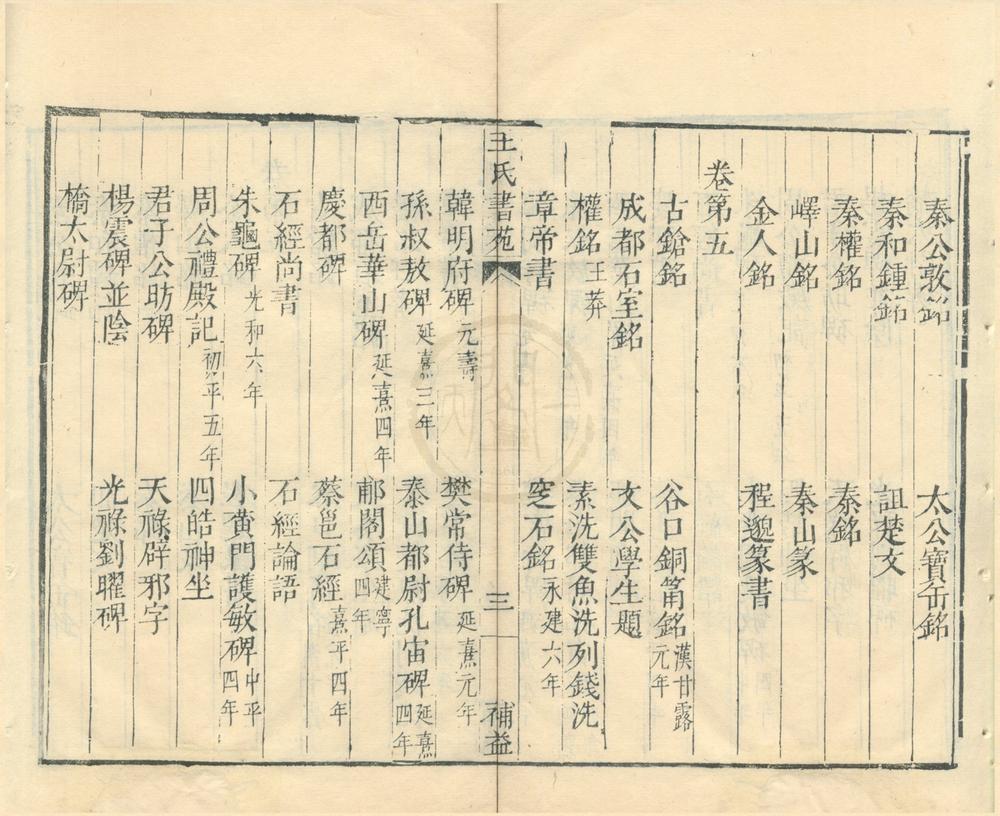 秦公敦銘　太公寶缶銘
秦和鍾銘　詛楚文
秦權銘　秦銘
嶧山銘　秦山篆
金人銘　程邈篆書
卷第五
古鎗銘　谷口銅筩銘漢甘露元年
成都石室銘　文公學生題
權銘王莽　素洗雙魚洗列錢洗
章帝書　窆石銘永建六年
王氏書苑　三　補益
韓明府碑元壽　樊常侍碑延熹元年
孫叔敖碑延熹三年　泰山都尉孔宙碑延熹四年
西岳華山碑延熹四年　郙閣頌建寧四年
慶都碑　蔡邕石經熹平四年
石經尚書　石經論語
朱龜碑光和六年　小黃門護敏碑中平四年
周公禮殿記初平五年　四皓神坐
君子公昉碑　天祿辟邪字
楊震碑並陰　光祿劉曜碑
橋太尉碑